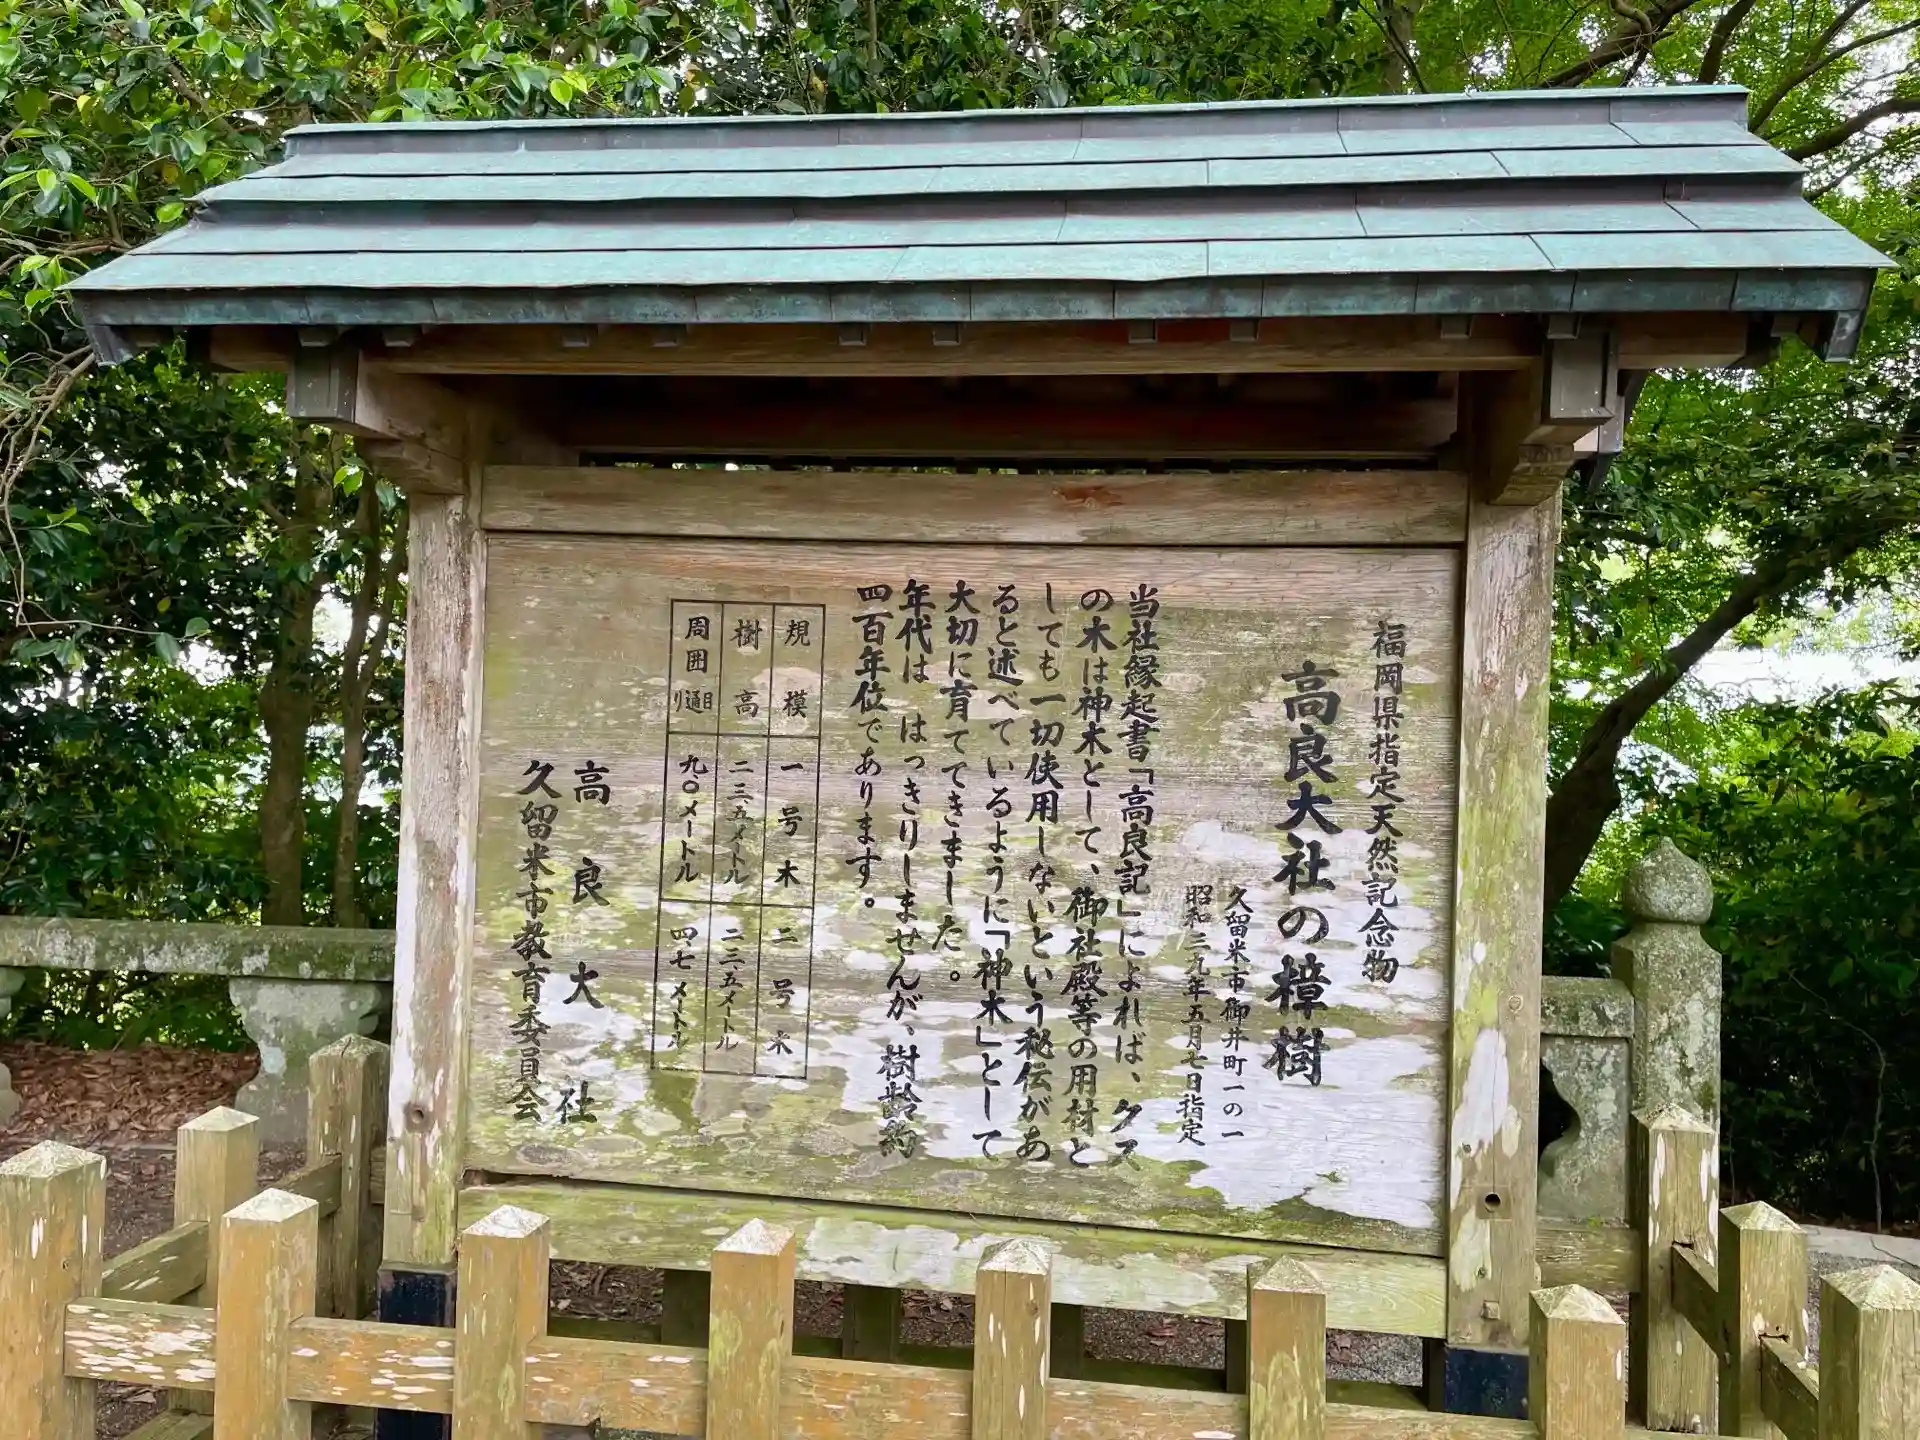 福岡県指定天然記念物
高良大社の樟樹
久留米市御井町一の一
昭和三九年五月七日指定
当社縁起書「高良記」によれば、クス
の木は神木として、御社殿等の用材と
しても一切使用しないという秘伝があ
ると述べているように「神木」として
大切に育ててきました。
年代は はっきりしませんが、樹齢約
四百年位であります。
規模 一号木 二号木
樹高 二三.五メートル 二三.五メートル
周囲 目通り 九.〇メートル 四.七メートル
高良大社
久留米市教育委員会